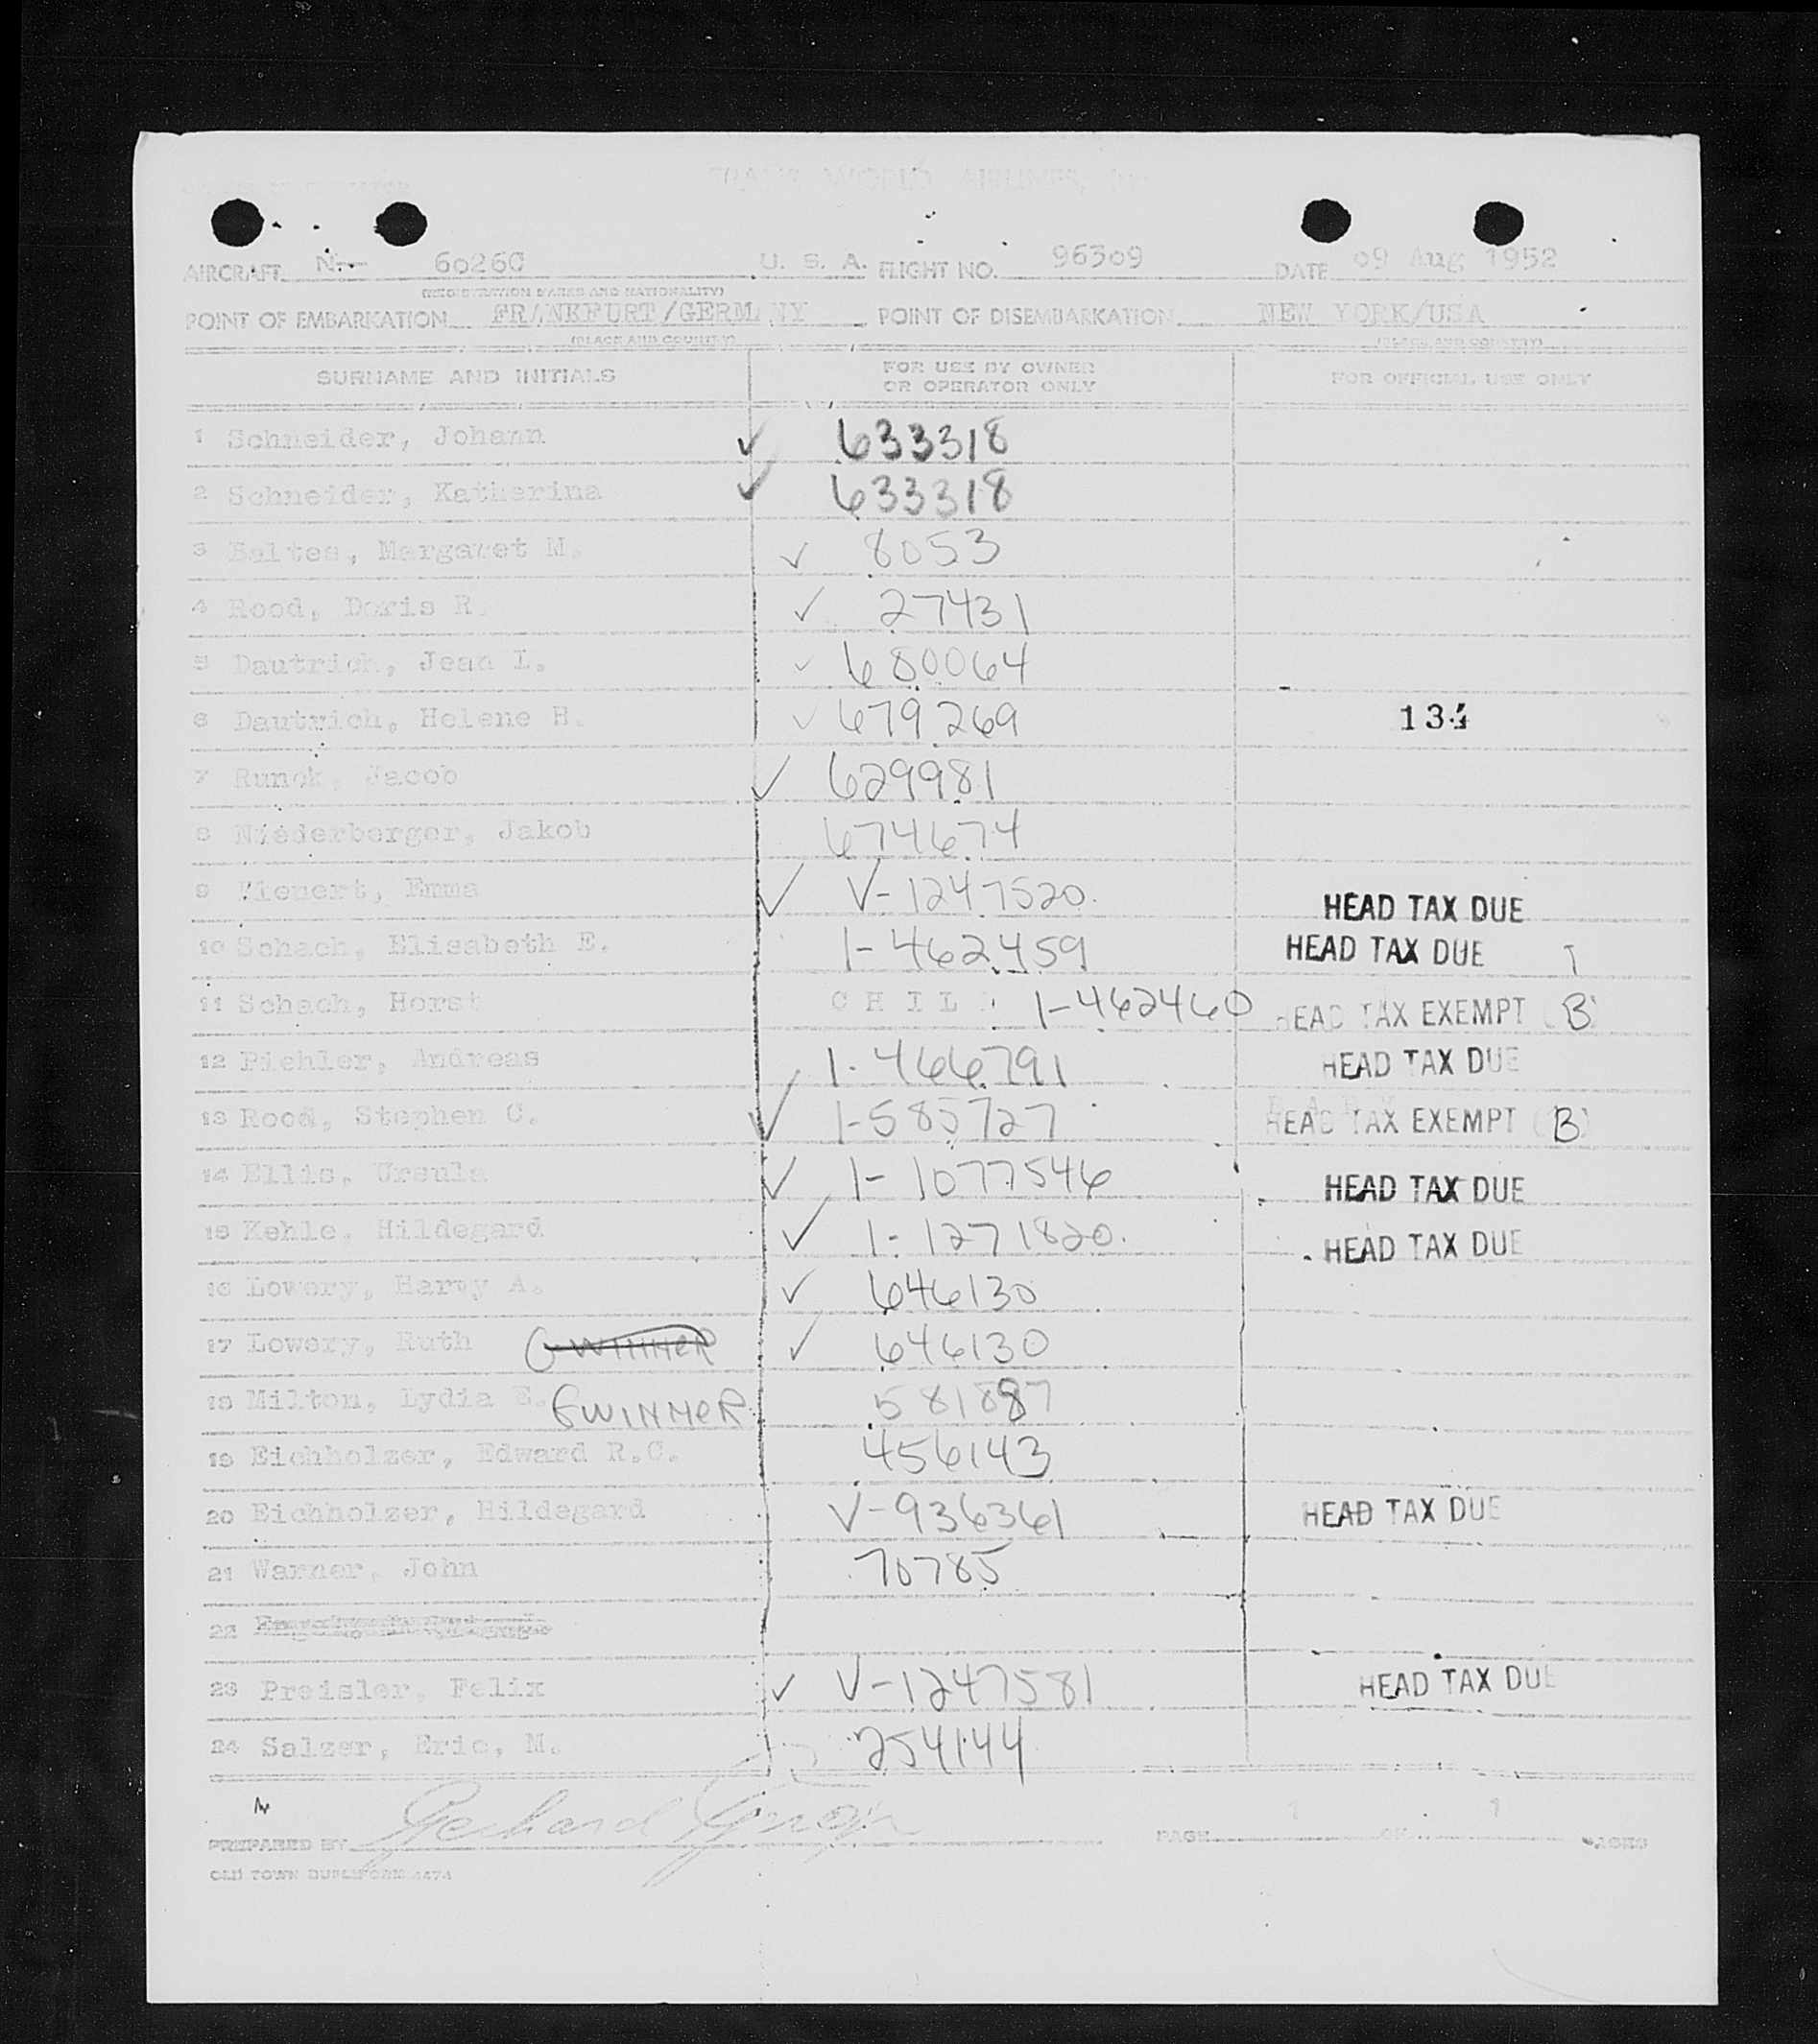 TRANS WORLD AIRLINES, INC.
AIRCRAFT N-- 6026C U. S. A. FLIGHT NO. 96309 DATE 09 Aug 1952
(REGISTRATION MARKS AND NATIONALITY)
POINT OF EMBARKATION FRANKFURT/GERMANY POINT OF DISEMBARKATION NEW YORK/USA
(PLACE AND COUNTRY) (PLACE AND COUNTRY)
SURNAME AND INITIALS FOR USE BY OWNER OR OPERATOR ONLY FOR OFFICIAL USE ONLY
1 Schneider, Johann ✓ 633318
2 Schneider, Katherina ✓ 633318
3 Baltes, Margaret M. ✓ 8053
4 Rood, Doris R. ✓ 27431
5 Dautrich, Jean L. ✓ 680064
6 Dautrich, Helene H. ✓ 679269 134
7 Runck, Jacob ✓ 629981
8 Niederberger, Jakob 674674
9 Emma ✓ V-1247520 HEAD TAX DUE
10 Schach, Elisabeth E. 1-462459 HEAD TAX DUE T
11 Schach, Horst CHILD 1-462460 HEAD TAX EXEMPT (B)
12 Pichler, Andreas 1-466791 HEAD TAX DUE
13 Rood, Stephen C. ✓ 1-585727 HEAD TAX EXEMPT (B)
14 Ellis, Ursula ✓ 1-1077546 HEAD TAX DUE
15 Kehle, Hildegard ✓ 1-1271820 HEAD TAX DUE
16 Lowery, Harvy A. ✓ 646130
17 Lowery, Ruth GWINNER ✓ 646130
18 Milton, Lydia E. GWINNER 581887
19 Eichholzer, Edward R.C. 456143
20 Eichholzer, Hildegard V-936361 HEAD TAX DUE
21 Warner, John 70785
22
23 Preisler, Felix ✓ V-1247581 HEAD TAX DUE
24 Salzer, Eric, M. 254144
PREPARED BY Gerhard PAGE 1 OF 1 PAGES
OLD TOWN 4474